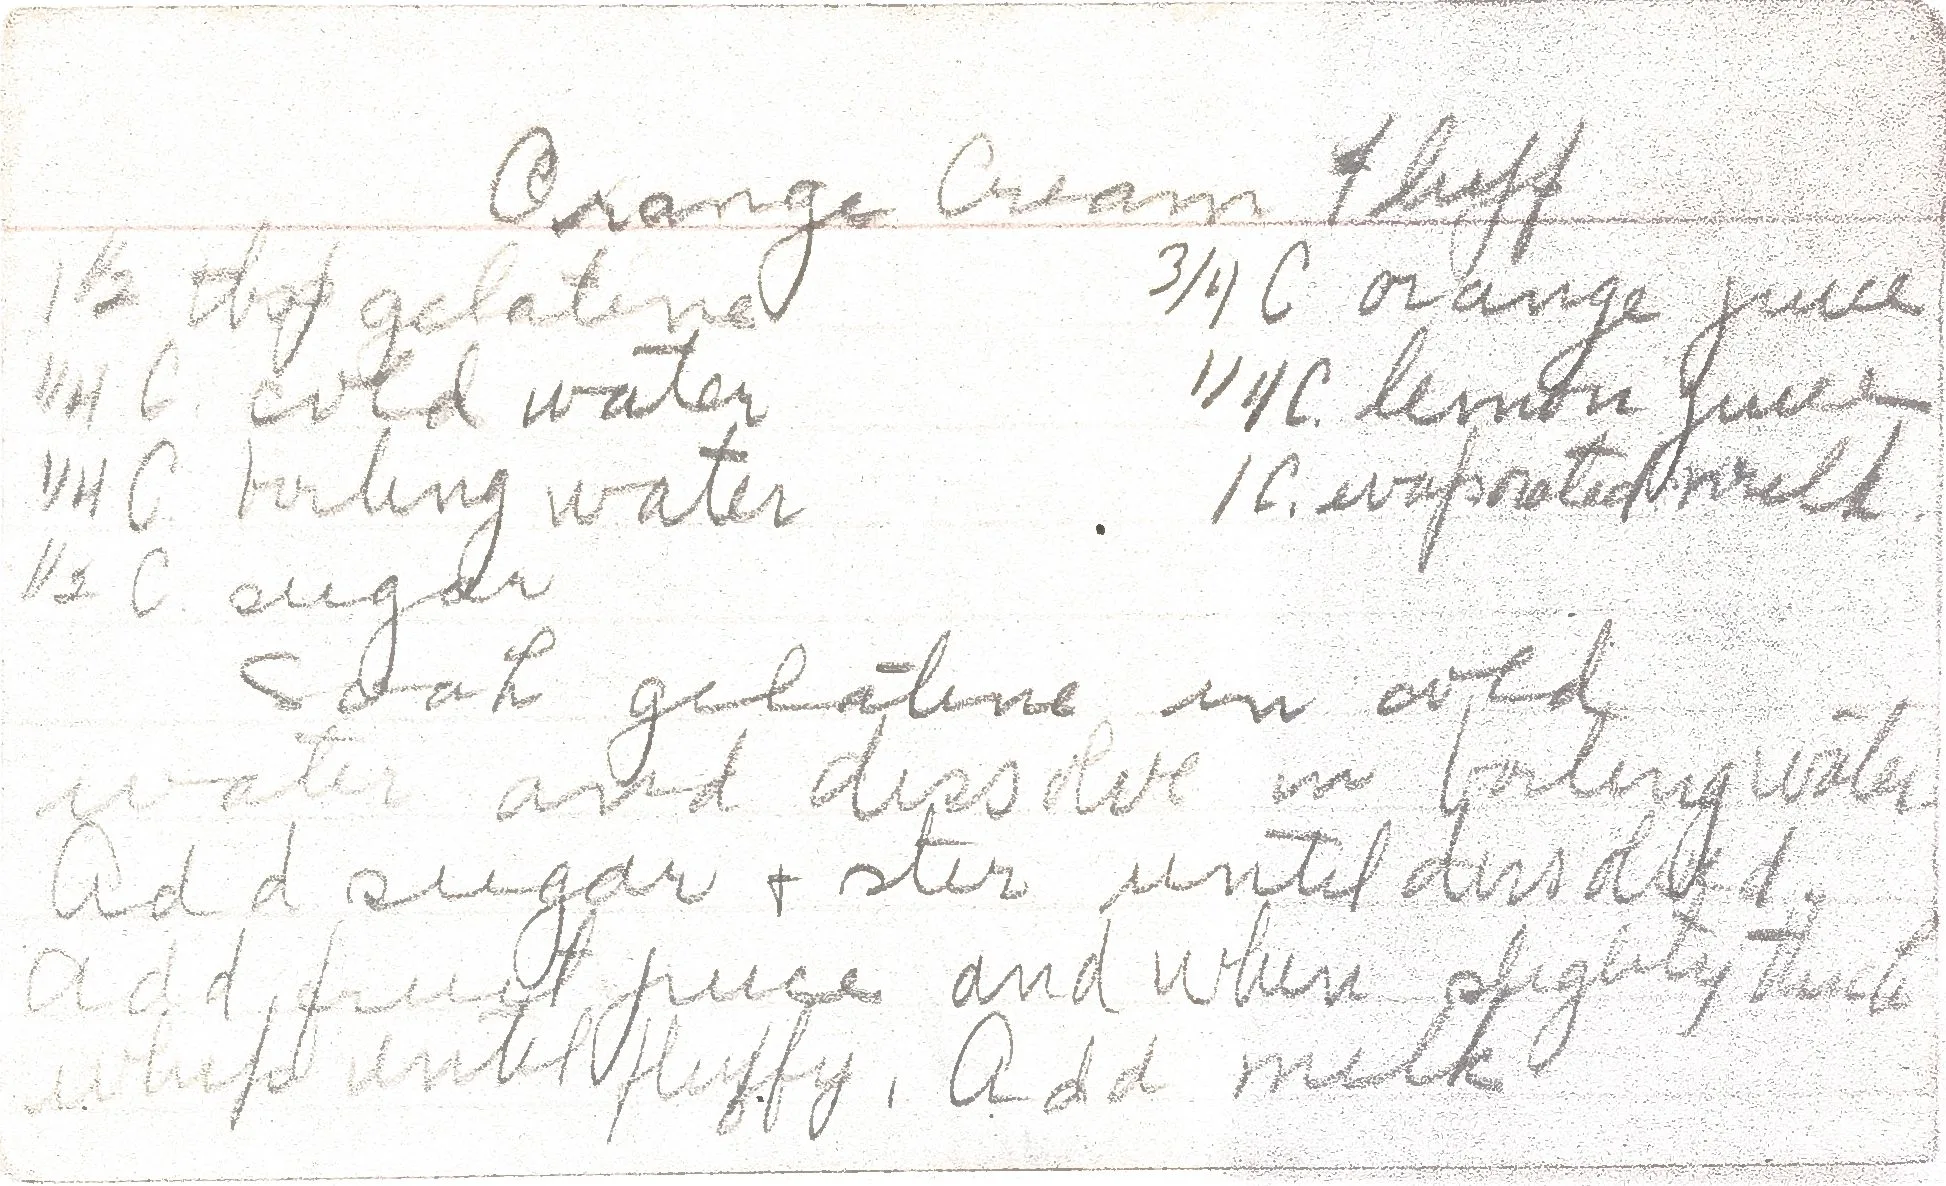 Orange Cream Fluff
1 1/2 tbsp gelatine
3/4 C orange juice
1/4 C. cold water
1/4 C. lemon juice
1/4 C boiling water
1 C. evaporated milk.
1/2 C. sugar
Soak gelatine in cold
water and dissolve in boiling water
Add sugar + stir until dissolved.
Add fruit juice and when slightly thick
whip until fluffy. Add milk